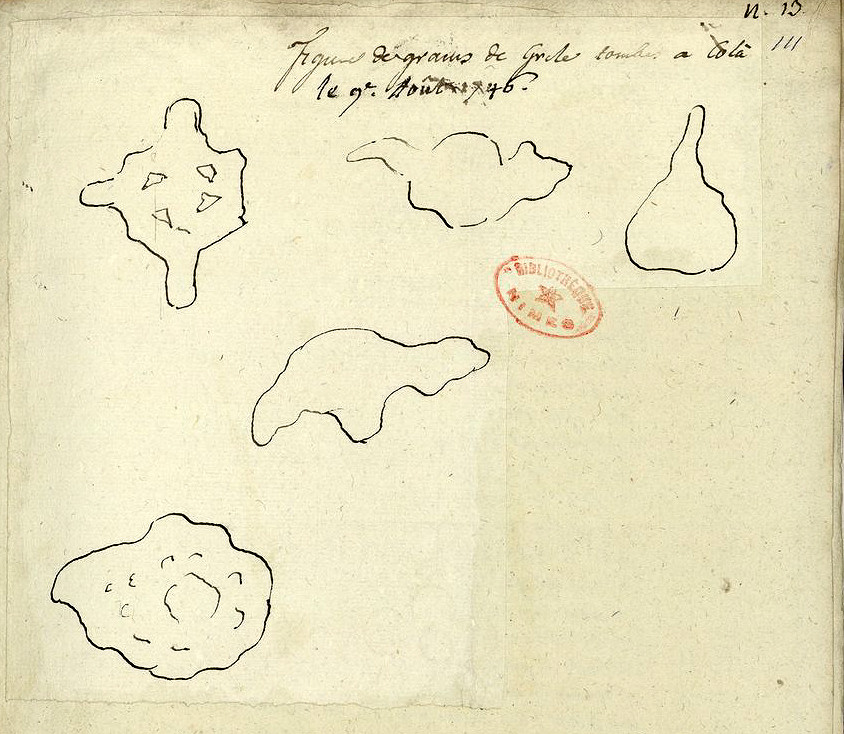 n. 13.
111
Figure de grains de Grele tombes a
le 9e. Août 1746.
BIBLIOTHÈQUE
NIMES